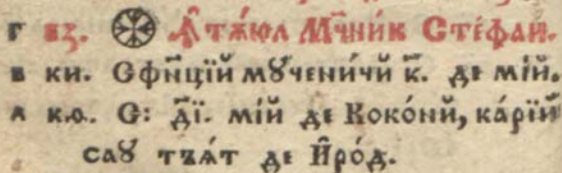 г кз. Ꙟтѫюл Мч҃ник Стефан.
в ки. Сфинції мꙋченичй к҃. де мїй.
а кѳ. С: д҃ї. мїй де Коконй, карїй
саꙋ тъѧт де Ирод.